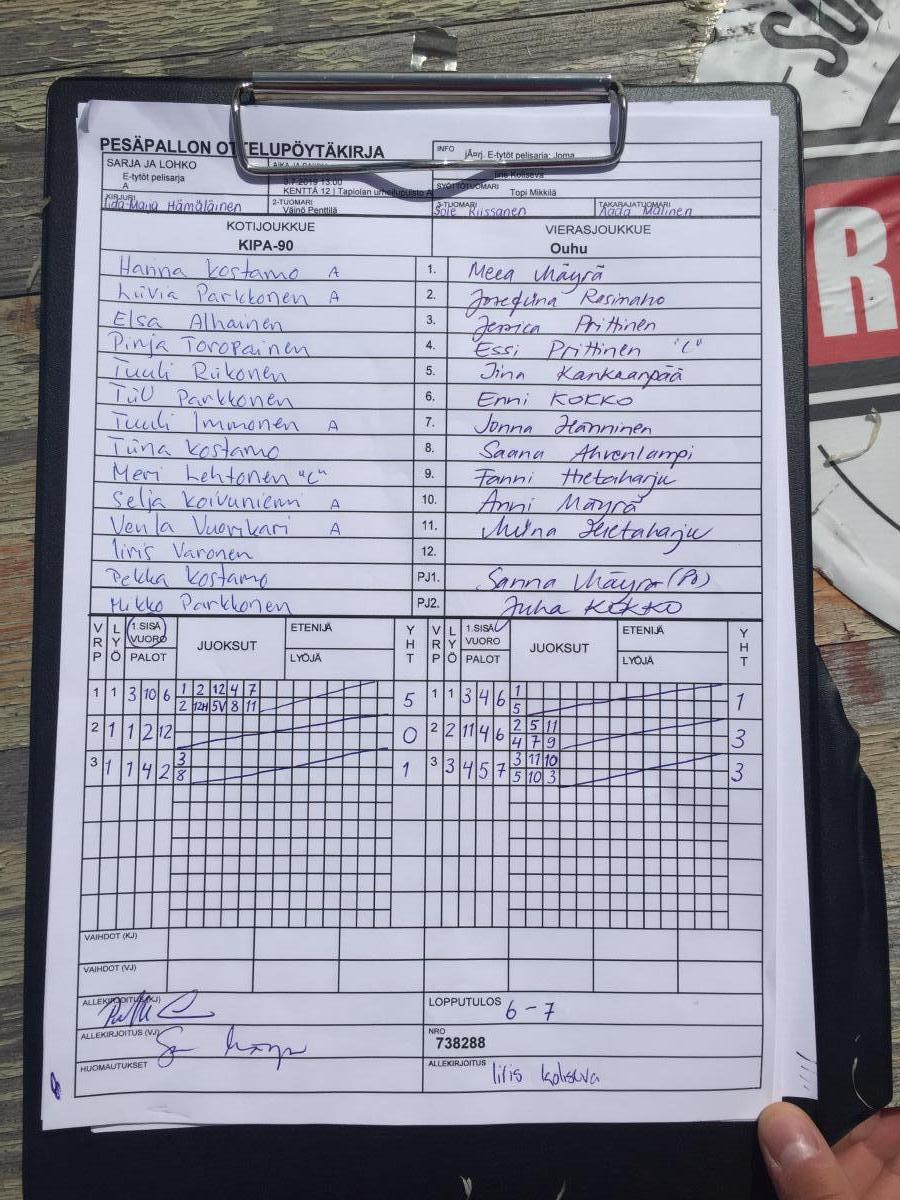 PESÄPALLON OTTELUPÖYTÄKIRJA
INFO jÄrj. E-tytöt pelisarja: Joma
SARJA JA LOHKO
E-tytöt pelisarja
A
Iiris Koliseva
KENTTÄ 12 | Tapiolan urheilupuisto A
SYÖTTÖTUOMARI Topi Mikkilä
KIRJURI Iida-Maija Hämäläinen
2-TUOMARI Väinö Penttilä
3-TUOMARI Sole Riissanen
TAKARAJATUOMARI Aada Malinen
KOTIJOUKKUE VIERASJOUKKUE
KIPA-90 Ouhu
Hanna Kostamo A 1. Meea Mäyrä
Liivia Parkkonen A 2. Josefiina Rasinaho
Elsa Alhainen 3. Jessica Prittinen
Pinja Toropainen 4. Essi Prittinen "C"
Tuuli Riikonen 5. Iina Kankaanpää
Tiili Parkkonen 6. Enni KOKKO
Tuuli Immonen A 7. Jonna Hänninen
Tiina Kostamo 8. Saana Ahvenlampi
Meri Lehtonen "C" 9. Fanni Hietaharju
Selja Koivuniemi A 10. Anni Mäyrä
Venla Vuorikari A 11. Milna Hietaharju
Iiris Varonen 12.
Pekka Kostamo PJ1. Sanna Mäyrä (PJ)
Mikko Parkkonen PJ2. Juha KOKKO
VRP LYÖ 1.SISÄVUORO PALOT JUOKSUT ETENIJÄ LYÖJÄ YHT VRP LYÖ 1.SISÄVUORO PALOT JUOKSUT ETENIJÄ LYÖJÄ YHT
1 1 3 10 6 1 2 12 4 7 5 1 1 3 4 6 1 1
2 12H 5V 8 11 5
2 1 1 2 12 0 2 2 11 4 6 2 5 11 3
4 7 9
3 1 1 4 2 3 1 3 3 4 5 7 3 11 10 3
8 5 10 3
VAIHDOT (KJ)
VAIHDOT (VJ)
ALLEKIRJOITUS (KJ)
LOPPUTULOS 6-7
ALLEKIRJOITUS (VJ)
NRO
738288
HUOMAUTUKSET
ALLEKIRJOITUS Iiris Koliseva
R